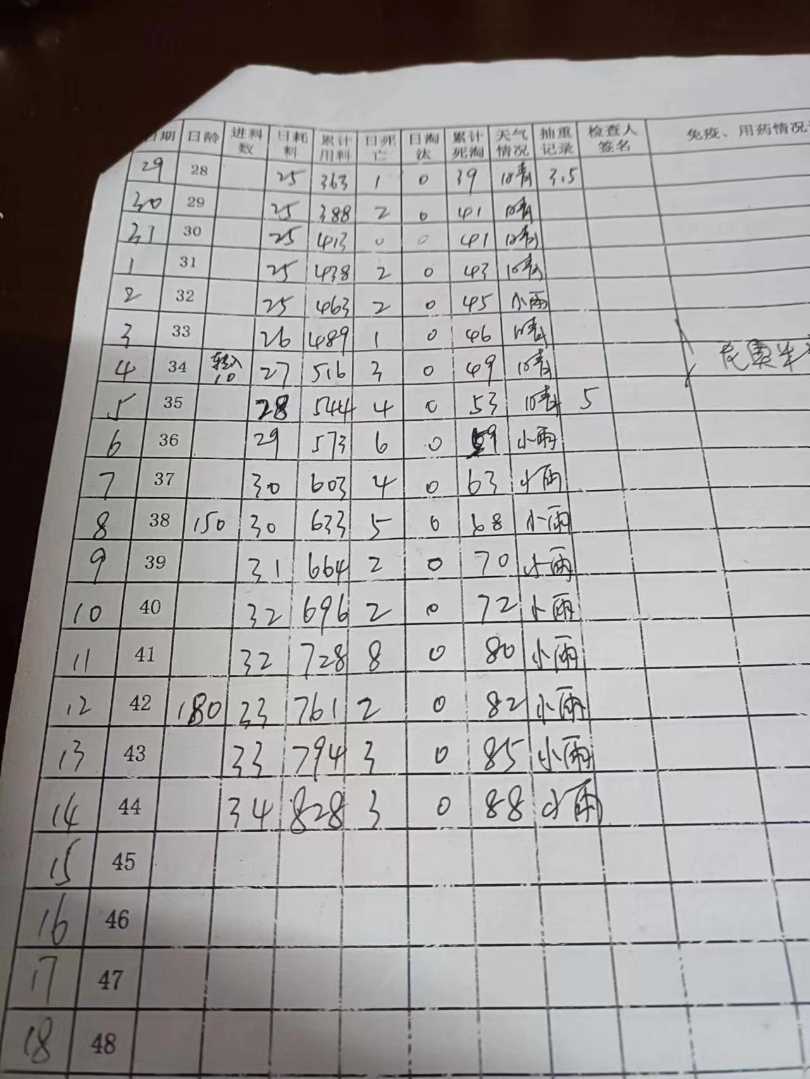 日期 日龄 进料数 日耗料 累计用料 日死亡 日淘汰 累计死淘 天气情况 抽重记录 检查人签名 免疫、用药情况
29 28 25 363 1 0 39 3.5
30 29 25 388 2 0 41
31 30 25 413 0 0 41
1 31 25 438 2 0 43
2 32 25 463 2 0 45 小雨
3 33 26 489 1 0 46
4 34 转入10 27 516 3 0 49
5 35 28 544 4 0 53 5
6 36 29 573 6 0 59 小雨
7 37 30 603 4 0 63 小雨
8 38 150 30 633 5 0 68 小雨
9 39 31 664 2 0 70 小雨
10 40 32 696 2 0 72 小雨
11 41 32 728 8 0 80 小雨
12 42 180 33 761 2 0 82 小雨
13 43 33 794 3 0 85 小雨
14 44 34 828 3 0 88 小雨
15 45
16 46
17 47
18 48